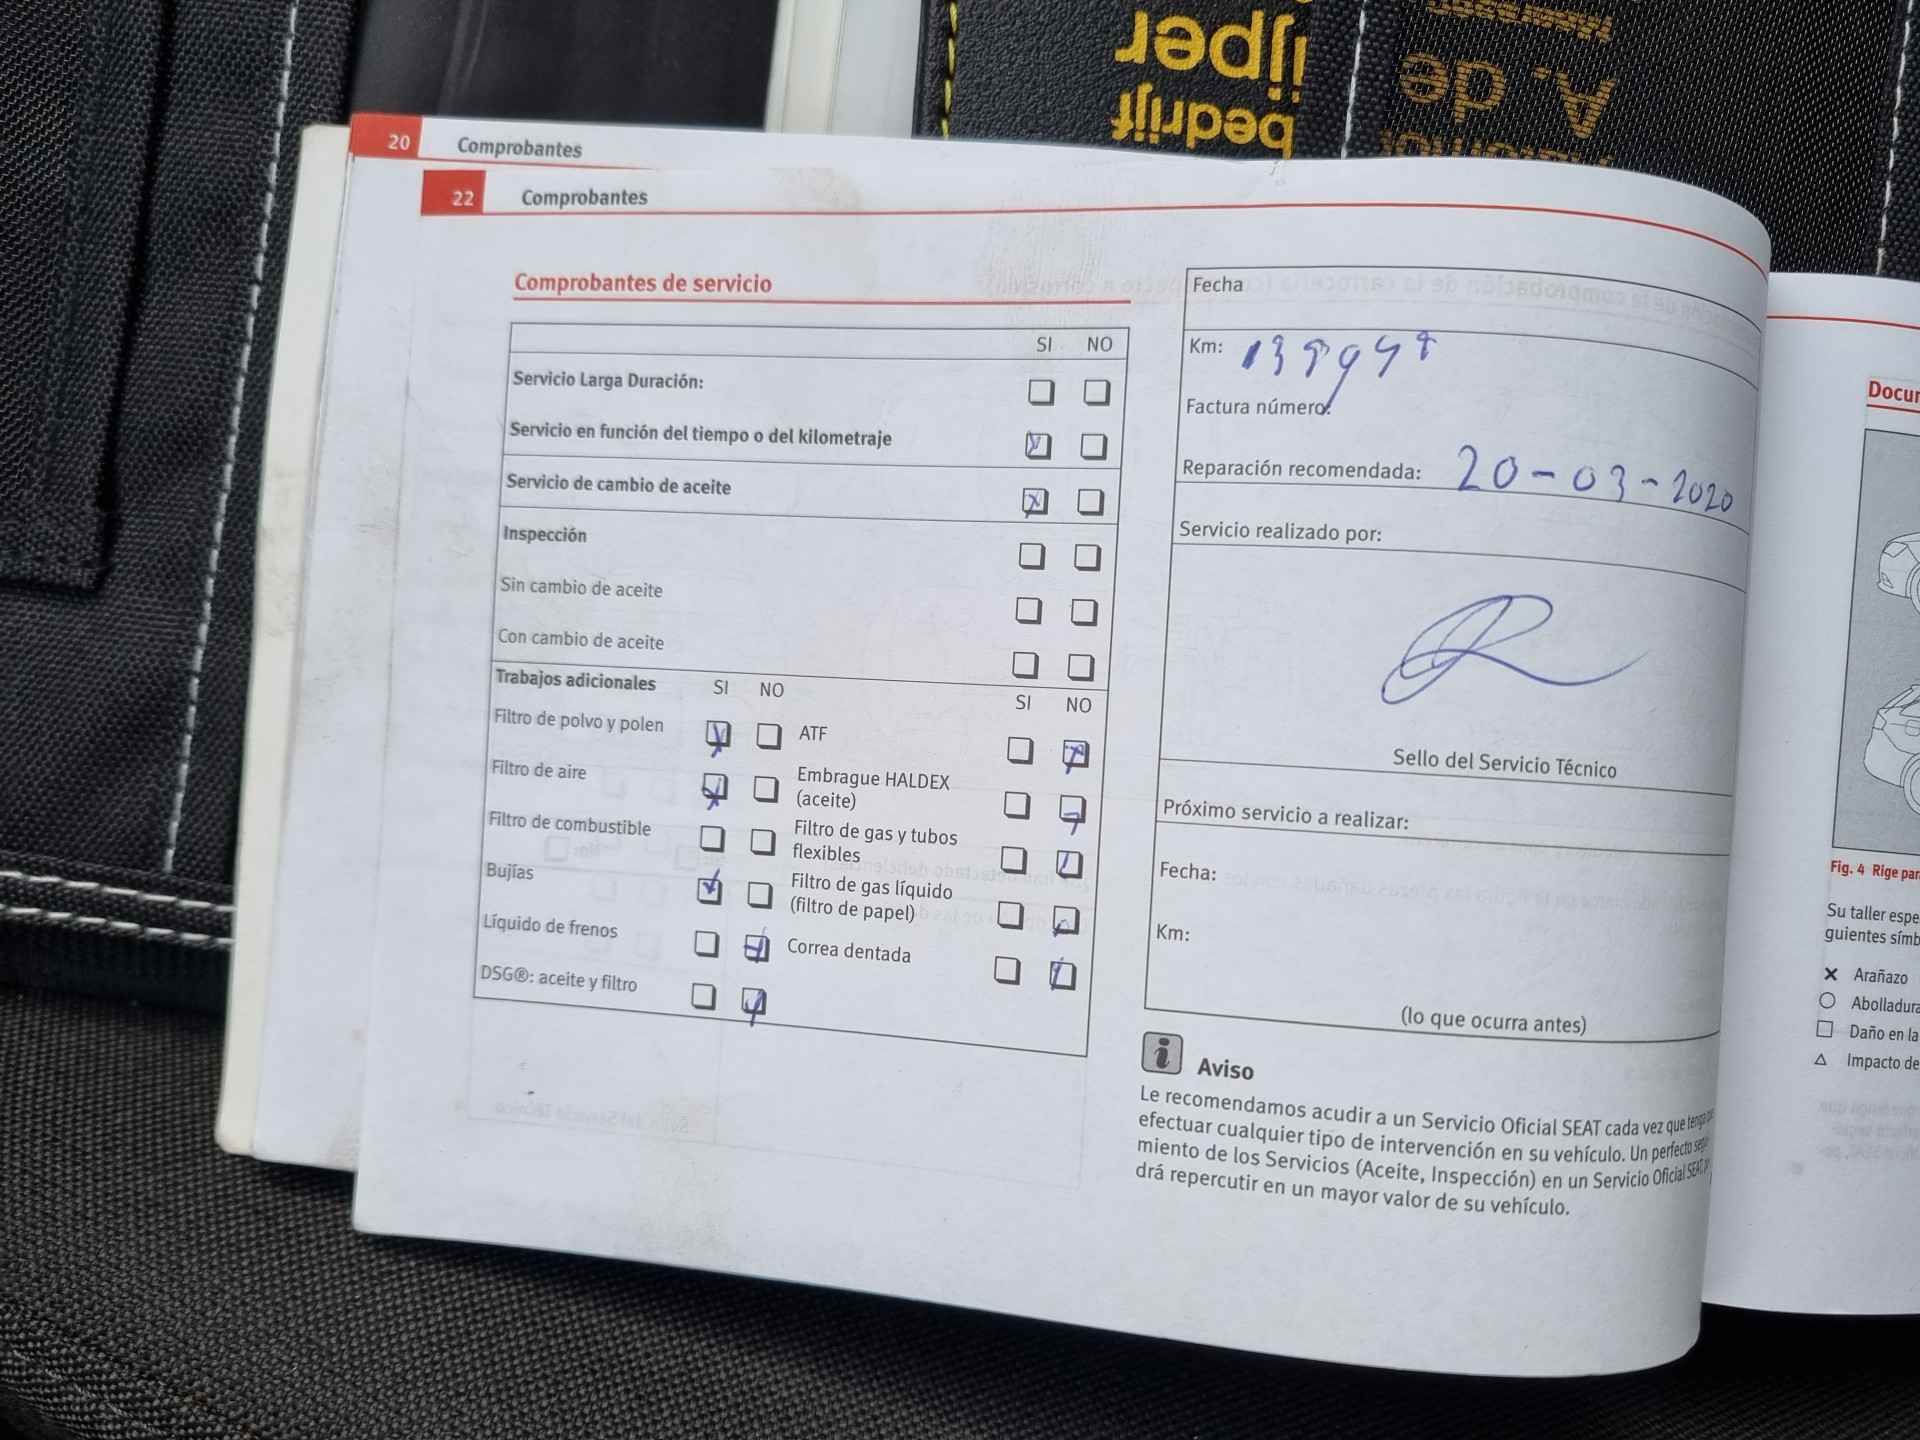 bedrijf
ijper
A. de
20 Comprobantes
22 Comprobantes
Comprobantes de servicio
SI NO
Servicio Larga Duración:
Servicio en función del tiempo o del kilometraje
Servicio de cambio de aceite
Inspección
Sin cambio de aceite
Con cambio de aceite
Trabajos adicionales SI NO SI NO
Filtro de polvo y polen
ATF
Filtro de aire
Embrague HALDEX
(aceite)
Filtro de combustible
Filtro de gas y tubos
flexibles
Bujías
Filtro de gas líquido
(filtro de papel)
Líquido de frenos
Correa dentada
DSG®: aceite y filtro
Fecha
Km:
Factura número:
Reparación recomendada: 20-03-2020
Servicio realizado por:
Sello del Servicio Técnico
Próximo servicio a realizar:
Fecha:
Km:
(lo que ocurra antes)
Aviso
Le recomendamos acudir a un Servicio Oficial SEAT cada vez que tenga
efectuar cualquier tipo de intervención en su vehículo. Un perfecto
miento de los Servicios (Aceite, Inspección) en un Servicio Oficial SEAT
drá repercutir en un mayor valor de su vehículo.
Docur
Fig. 4 Rige par
Su taller espe
guientes símb
Arañazo
Abolladura
Daño en la
Impacto de